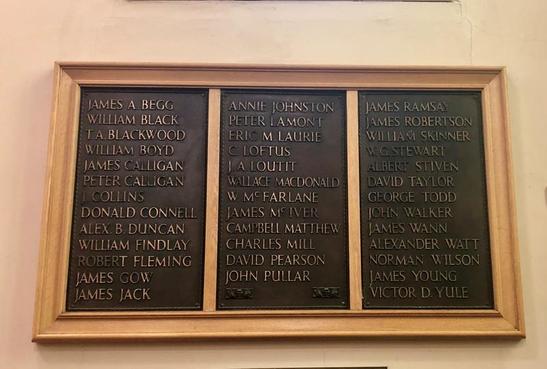 JAMES A. BEGG
WILLIAM BLACK
T. A. BLACKWOOD
WILLIAM BOYD
JAMES CALLIGAN
PETER CALLIGAN
J. COLLINS
DONALD CONNELL
ALEX. B. DUNCAN
WILLIAM FINDLAY
ROBERT FLEMING
JAMES GOW
JAMES JACK
ANNIE JOHNSTON
PETER LAMONT
ERIC M. LAURIE
C. LOFTUS
J. A. LOUTIT
WALLACE MACDONALD
W. McFARLANE
JAMES McIVER
CAMPBELL MATTHEW
CHARLES MILL
DAVID PEARSON
JOHN PULLAR
JAMES RAMSAY
JAMES ROBERTSON
WILLIAM SKINNER
W. G. STEWART
ALBERT STIVEN
DAVID TAYLOR
GEORGE TODD
JOHN WALKER
JAMES WANN
ALEXANDER WATT
NORMAN WILSON
JAMES YOUNG
VICTOR D. YULE